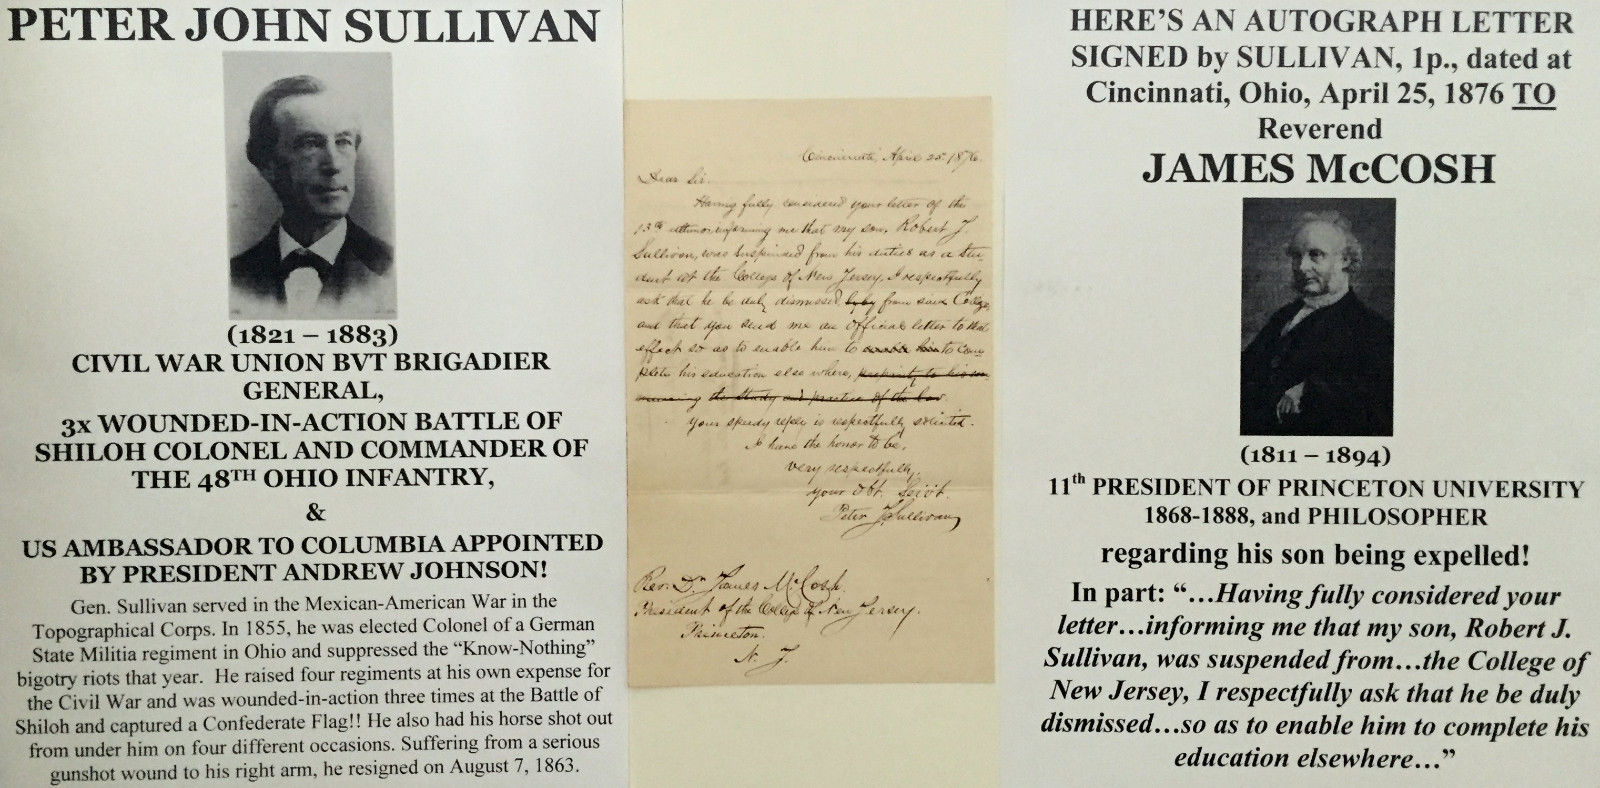 PETER JOHN SULLIVAN
(1821 – 1883)
CIVIL WAR UNION BVT BRIGADIER
GENERAL,
3x WOUNDED-IN-ACTION BATTLE OF
SHILOH COLONEL AND COMMANDER OF
THE 48TH OHIO INFANTRY,
&
US AMBASSADOR TO COLUMBIA APPOINTED
BY PRESIDENT ANDREW JOHNSON!
Gen. Sullivan served in the Mexican-American War in the
Topographical Corps. In 1855, he was elected Colonel of a German
State Militia regiment in Ohio and suppressed the “Know-Nothing”
bigotry riots that year. He raised four regiments at his own expense for
the Civil War and was wounded-in-action three times at the Battle of
Shiloh and captured a Confederate Flag!! He also had his horse shot out
from under him on four different occasions. Suffering from a serious
gunshot wound to his right arm, he resigned on August 7, 1863.
Cincinnati, April 25. 1876.
Dear Sir.
Having fully considered your letter of the
13th informing me that my son, Robert J.
Sullivan, was suspended from his duties as a stu-
dent at the College of New Jersey, I respectfully
ask that he be duly dismissed from said College,
and that you send me an official letter to that
effect so as to enable him to enable him to com
plete his education else where,
the study and practice of the law.
Your speedy reply is respectfully solicited.
I have the honor to be,
very respectfully,
your Obt. Servt.
Peter J. Sullivan
Rev. Dr. James McCosh.
President of the College of New Jersey.
Princeton.
N. J.
HERE’S AN AUTOGRAPH LETTER
SIGNED by SULLIVAN, 1p., dated at
Cincinnati, Ohio, April 25, 1876 TO
Reverend
JAMES McCOSH
(1811 – 1894)
11th PRESIDENT OF PRINCETON UNIVERSITY
1868-1888, and PHILOSOPHER
regarding his son being expelled!
In part: “…Having fully considered your
letter…informing me that my son, Robert J.
Sullivan, was suspended from…the College of
New Jersey, I respectfully ask that he be duly
dismissed…so as to enable him to complete his
education elsewhere…”